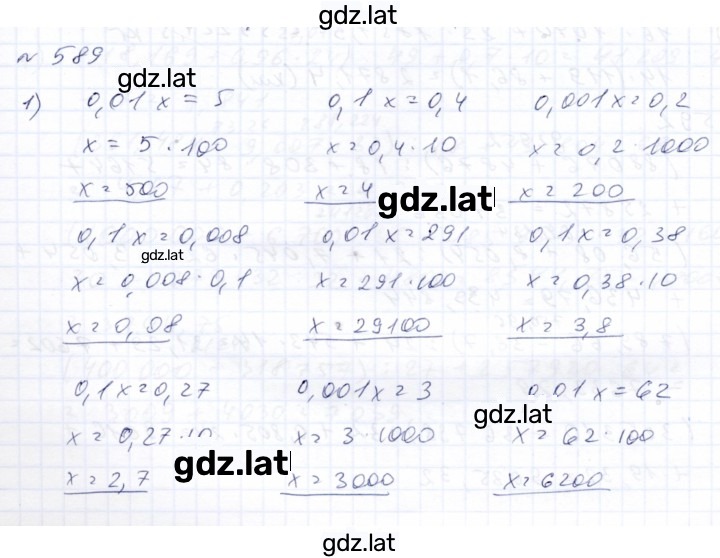 gdz.lat
№ 589
gdz.lat
1) 0,01x = 5   0,1x = 0,4   0,001x = 0,2
x = 5 · 100   x = 0,4 · 10   x = 0,2 · 1000
x = 500   x = 4   x = 200
gdz.lat
0,1x = 0,008   0,01x = 291   0,1x = 0,38
gdz.lat
x = 0,008 · 0,1   x = 291 · 100   x = 0,38 · 10
x = 0,08   x = 29100   x = 3,8
0,1x = 0,27   0,001x = 3   0,01x = 62
gdz.lat
x = 0,27 · 10   x = 3 · 1000   x = 62 · 100
gdz.lat
x = 2,7   x = 3000   x = 6200
gdz.lat